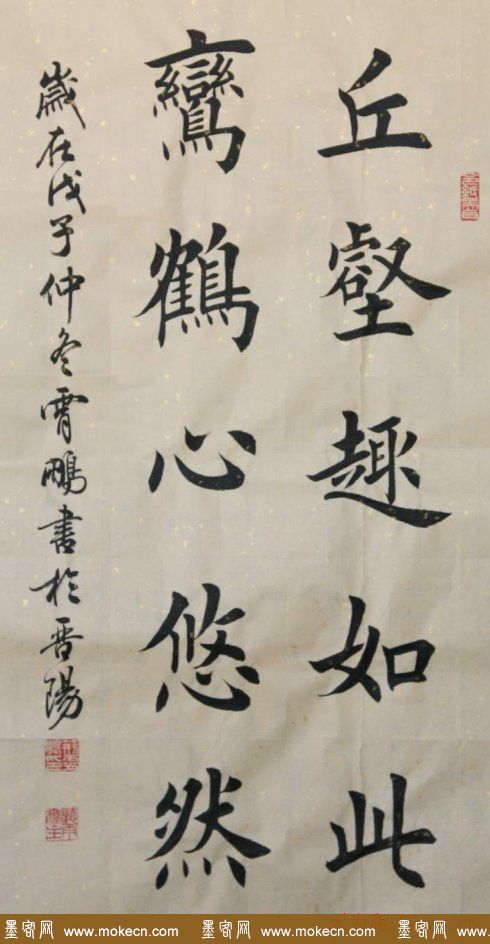 丘壑趣如此
鸞鶴心悠然
歲在戊子仲冬霄鵬書於晋陽
墨客网 www.mokecn.com 墨客网 www.mokecn.com 墨客网 www.mokecn.com